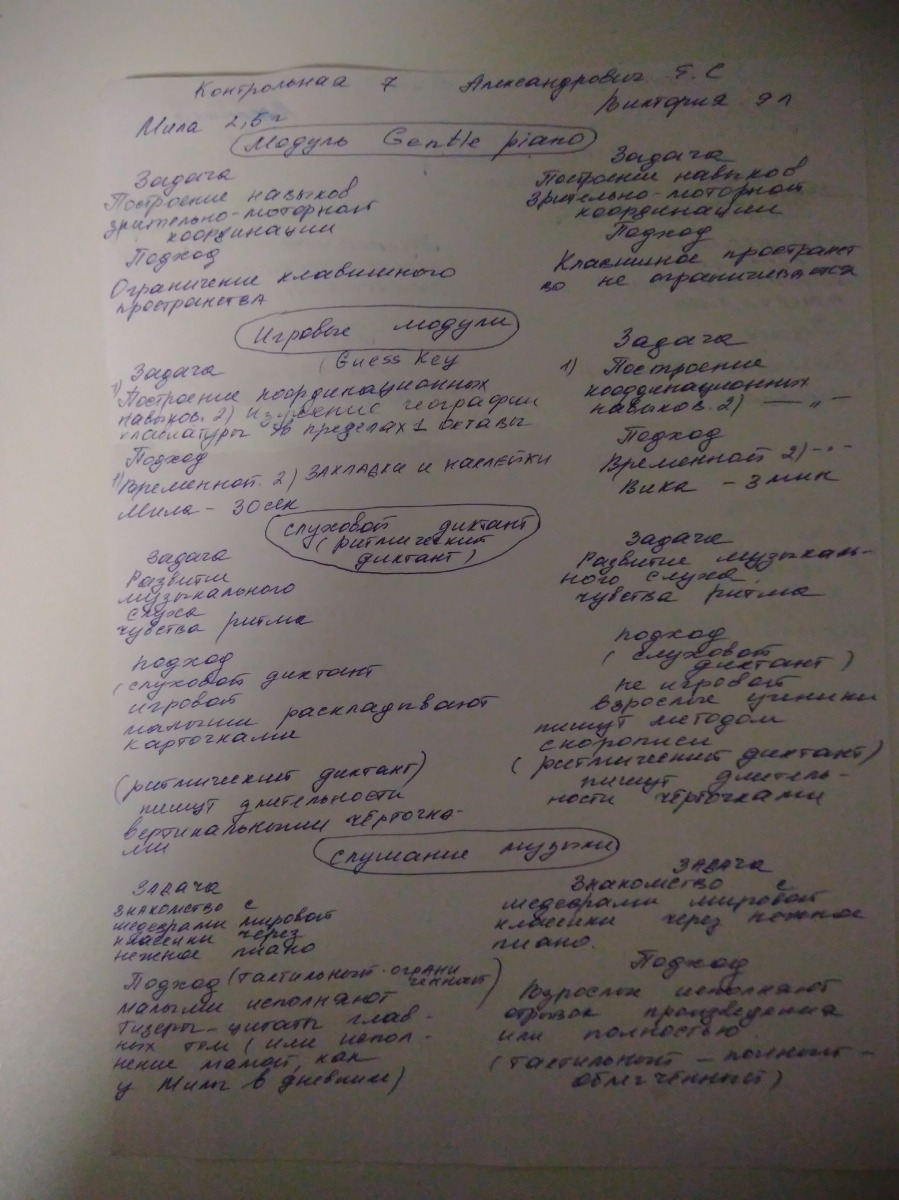 Контрольная 7 Александрович Т. С
Мила 2,5 г
Виктория 9 л
Модуль Gentle piano
Задача
Построение навыков
зрительно-моторной
координации
Подход
Ограничение клавишного
пространства
Задача
Построение навыков
зрительно-моторной
координации
Подход
Клавишное пространст
во не ограничивается
Игровые модули
(Guess Key
Задача
1) Построение координационных
навыков. 2) изучение географии
клавиатуры в пределах 1 октавы
Подход
1) Временной. 2) Закладки и наклейки
Мила - 30 сек
Задача
1) Построение
координационных
навыков. 2) — „ —
Подход
Временной 2) - „ -
Вика - 3 мин
Слуховой диктант
(ритмический
диктант)
Задача
Развитие
музыкального
слуха
чувства ритма
подход
(слуховой диктант
игровой
малыши раскладывают
карточками
(ритмический диктант)
пишут длительности
вертикальными чёрточка-
ми
Задача
Развитие музыкаль-
ного слуха,
чувства ритма
подход
(слуховой
диктант)
не игровой
взрослые ученики
пишут методом
скорописи
(ритмический диктант)
пишут длитель-
ности чёрточками
Слушание музыки
Задача
Знакомство с
шедеврами мировой
классики через
нежное пиано
Подход (тактильный. ограни
ченный)
малыши исполняют
тизеры - цитаты глав-
ных тем (или испол-
нение мамой, как
у Милы в дневник)
Задача
Знакомство с
шедеврами мировой
классики через нежное
пиано.
Подход
Взрослые исполняют
отрывок произведения
или полностью
(тактильный - полный -
облегчённый)